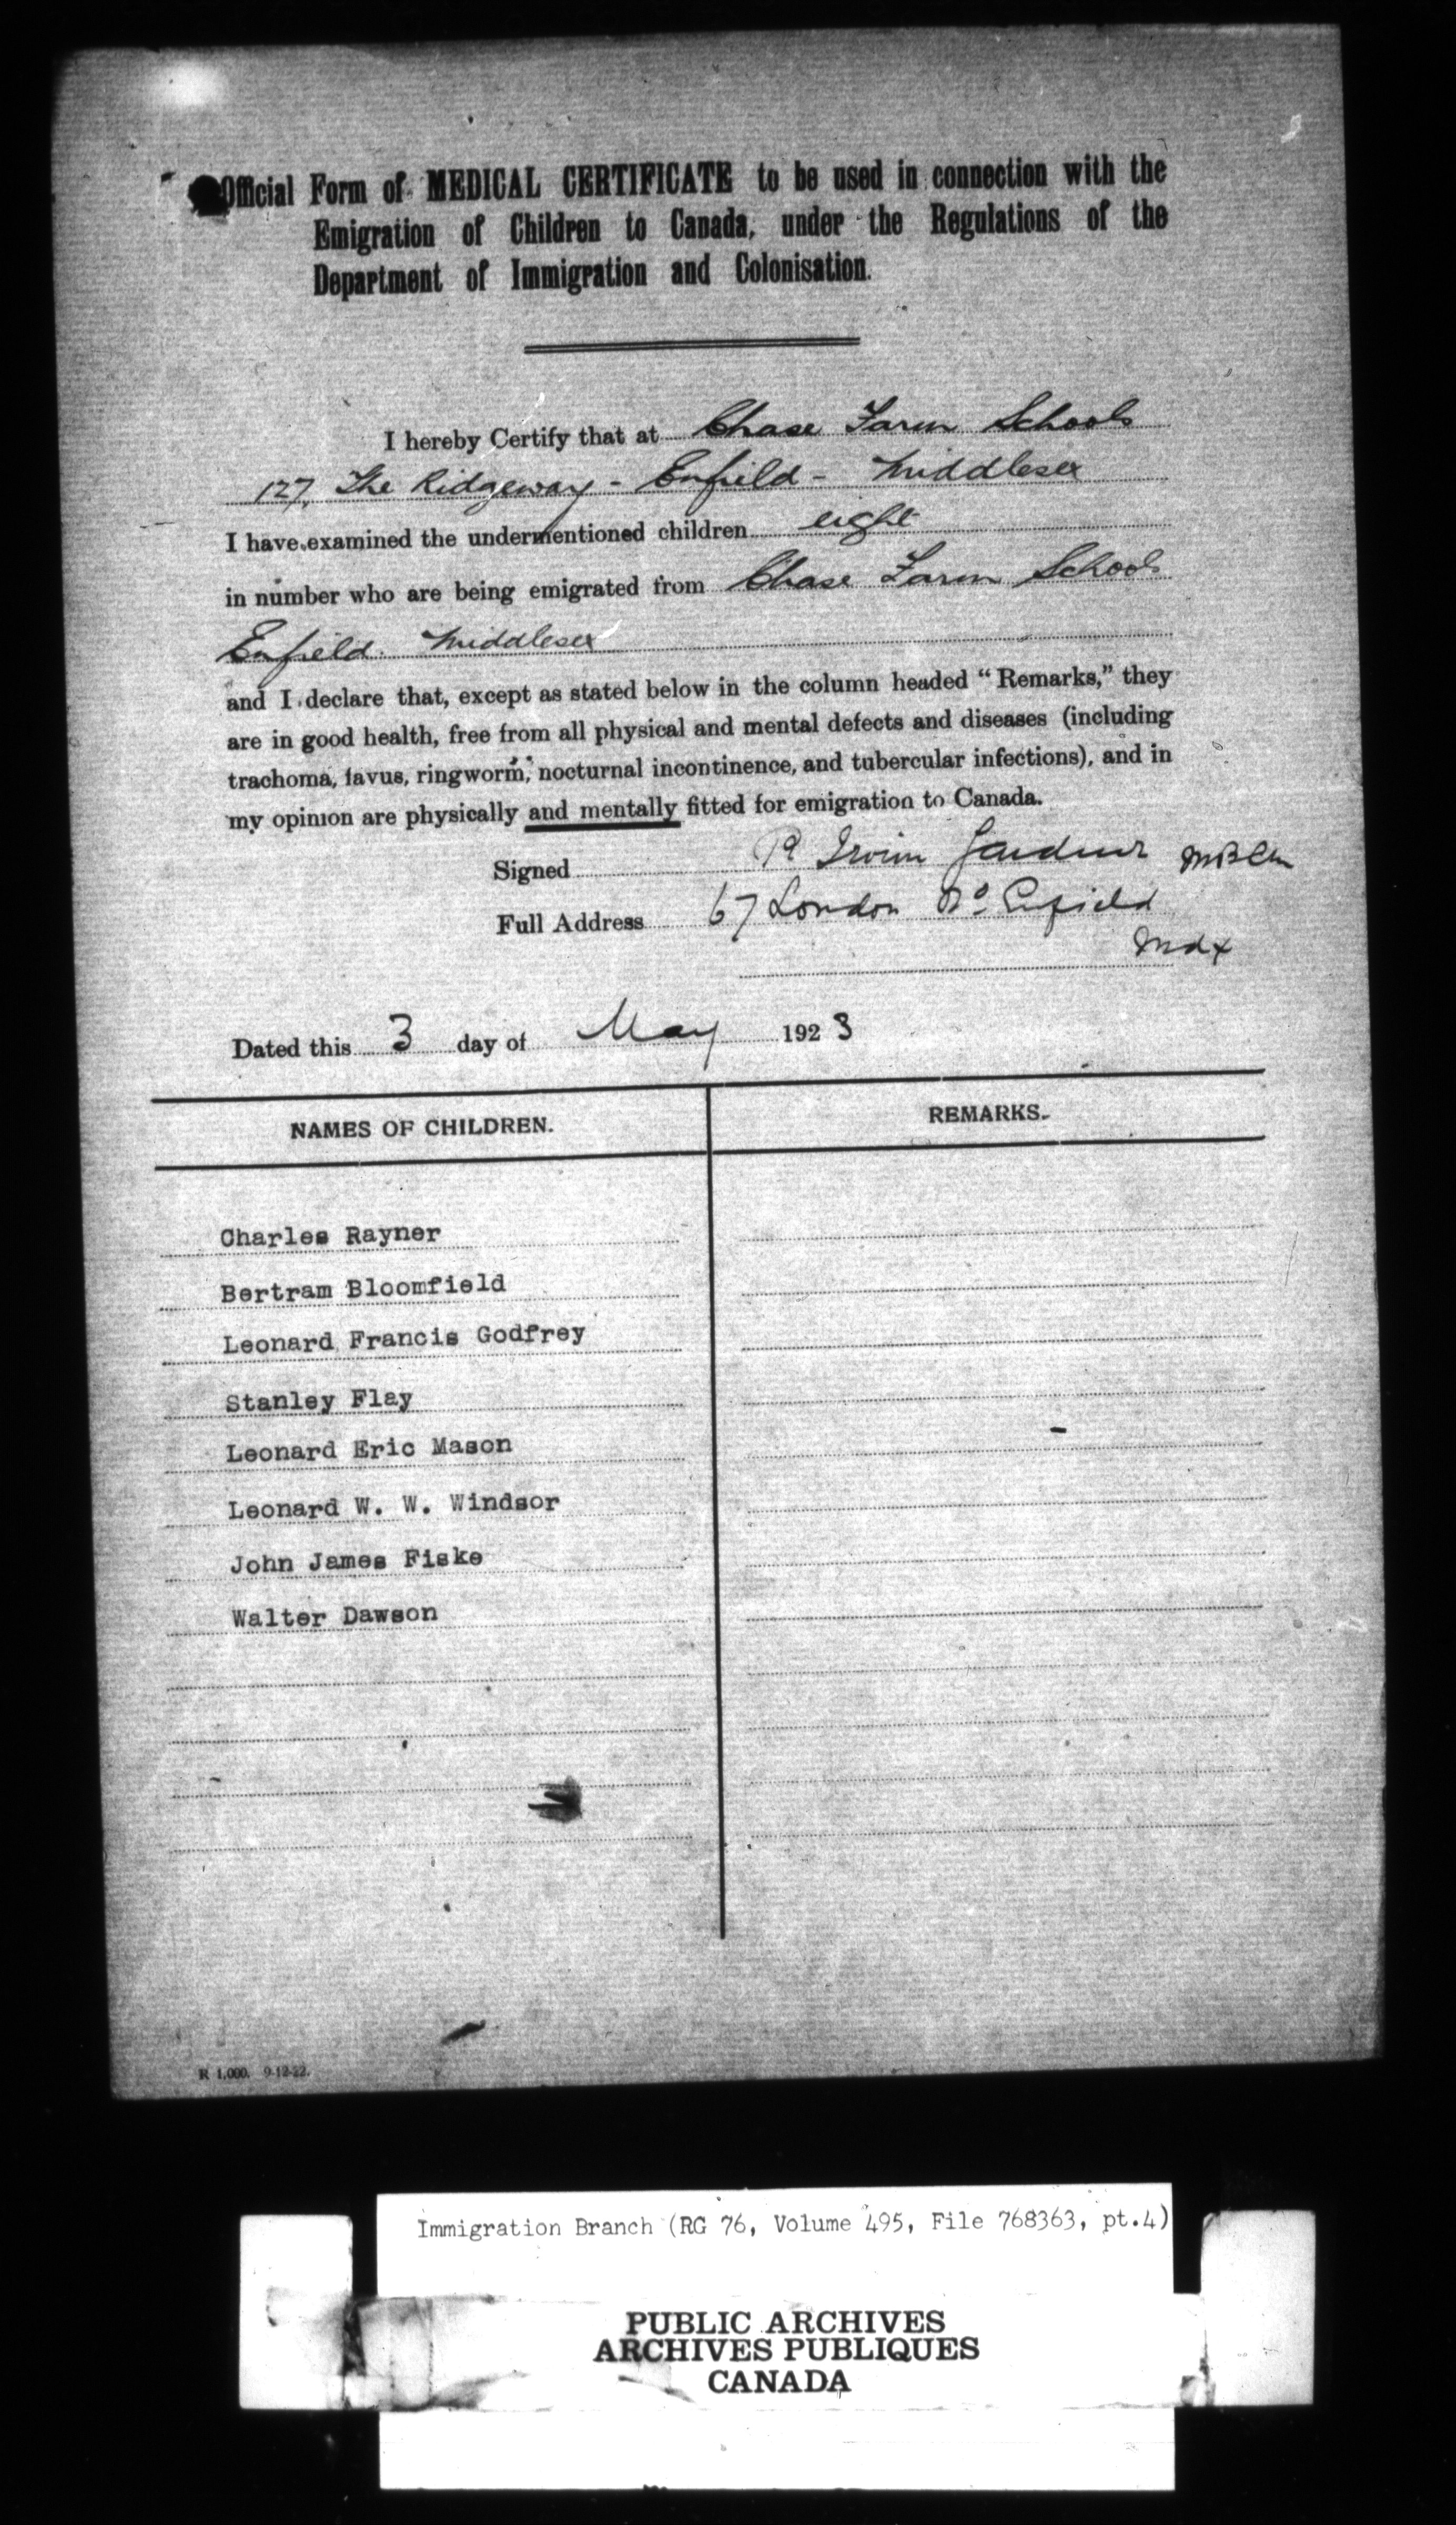 Official Form of MEDICAL CERTIFICATE to be used in connection with the
Emigration of Children to Canada, under the Regulations of the
Department of Immigration and Colonisation.
I hereby Certify that at Chase Farm Schools
127, The Ridgeway - Enfield - Middlesex
I have examined the undermentioned children eight
in number who are being emigrated from Chase Farm Schools
Enfield. Middlesex
and I declare that, except as stated below in the column headed "Remarks," they
are in good health, free from all physical and mental defects and diseases (including
trachoma, favus, ringworm, nocturnal incontinence, and tubercular infections), and in
my opinion are physically and mentally fitted for emigration to Canada.
Signed Irvin Gardner
Full Address 67 London Rd Enfield
Mdx
Dated this 3 day of May 1923
NAMES OF CHILDREN. REMARKS.
Charles Rayner
Bertram Bloomfield
Leonard Francis Godfrey
Stanley Flay
Leonard Eric Mason
Leonard W. W. Windsor
John James Fiske
Walter Dawson
R 1,000. 9-12-22.
Immigration Branch (RG 76, Volume 495, File 768363, pt.4)
PUBLIC ARCHIVES
ARCHIVES PUBLIQUES
CANADA